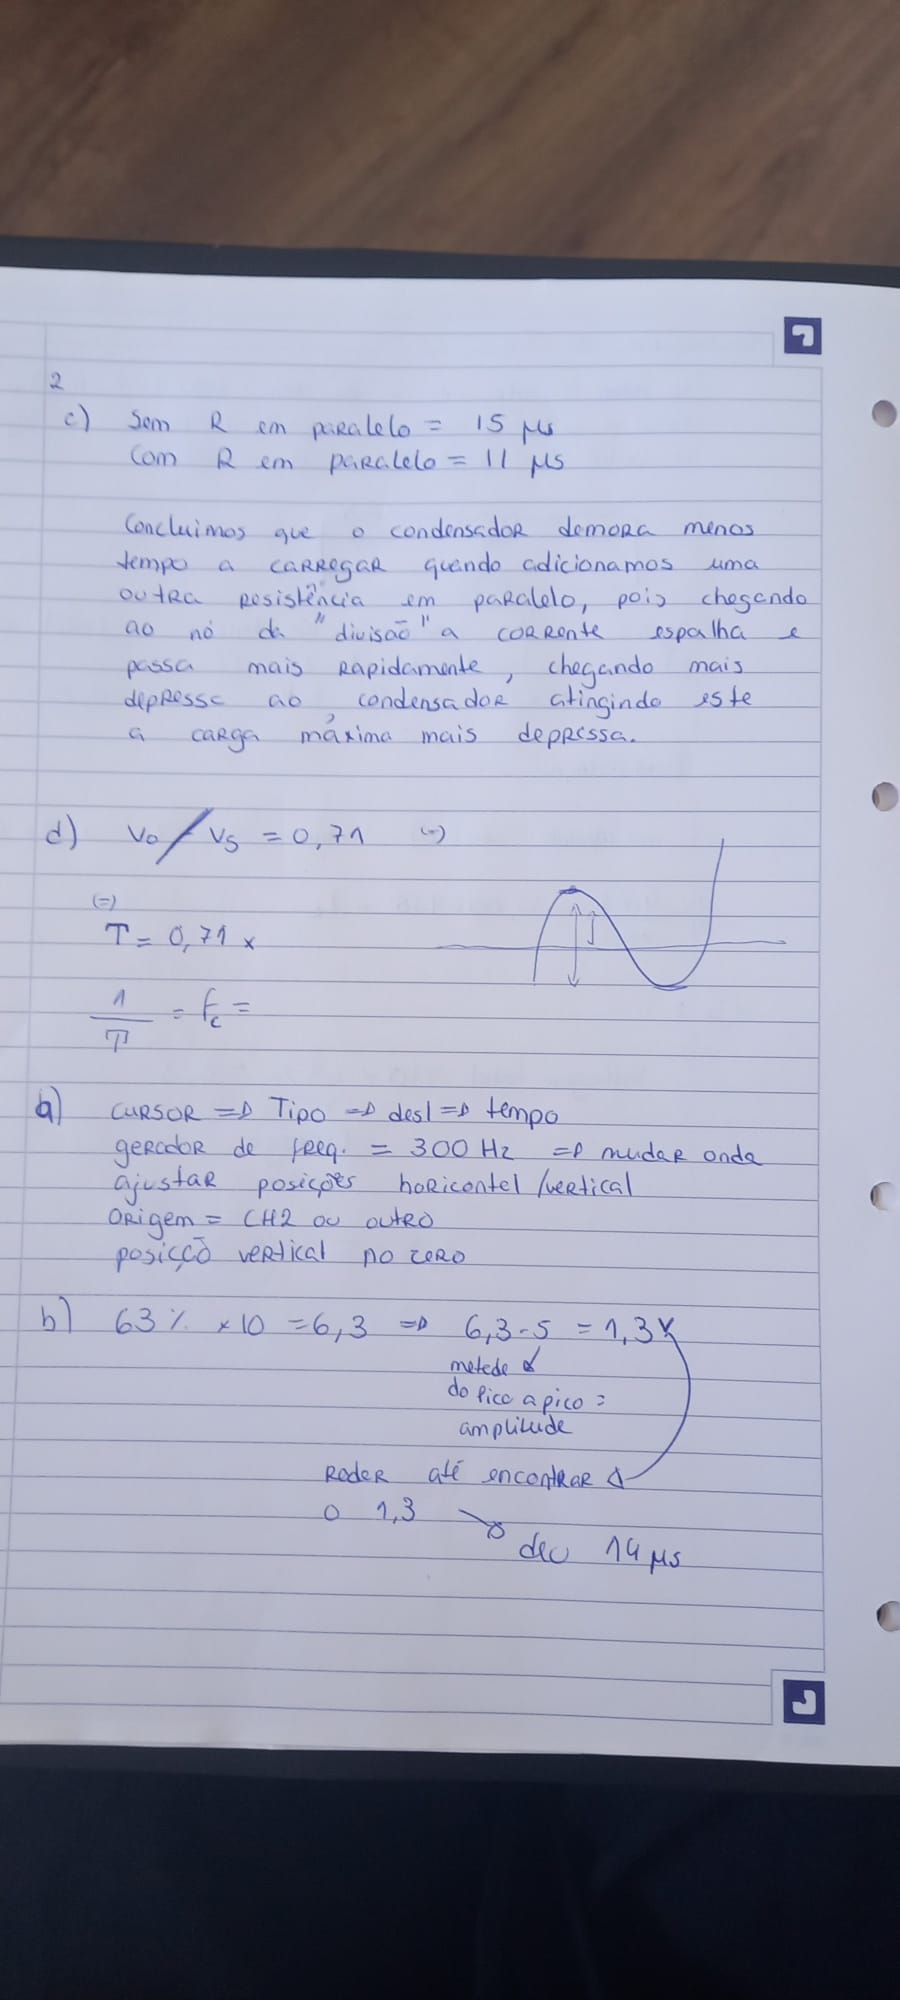 2
c) Sem R em paralelo = 15 μs
Com R em paralelo = 11 μs
Concluimos que o condensador demora menos
tempo a carregar quando adicionamos uma
outra resistência em paralelo, pois chegando
ao nó da "divisão" a corrente espalha e
passa mais rapidamente, chegando mais
depressa ao condensador atingindo este
a carga máxima mais depressa.
d) Vo / Vs = 0,71 (=)
(=)
T = 0,71 x
1/T = fc =
a) cursor => Tipo => desl => tempo
gerador de freq. = 300 Hz => mudar onda
ajustar posições horizontal/vertical
origem = CH2 ou outro
posicção vertical no zero
b) 63% x10 = 6,3 => 6,3-5 = 1,3V
metade
do pico a pico =
amplitude
Roder até encontrar
o 1,3
deu 14 μs